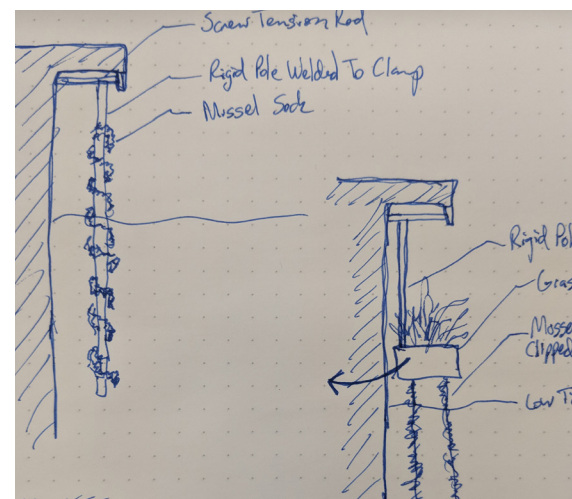 Screw Tension Rod
Rigid Pole Welded To Clamp
Mussel Sock
Rigid Pol
Gras
Musse
Clipped
Low Ti